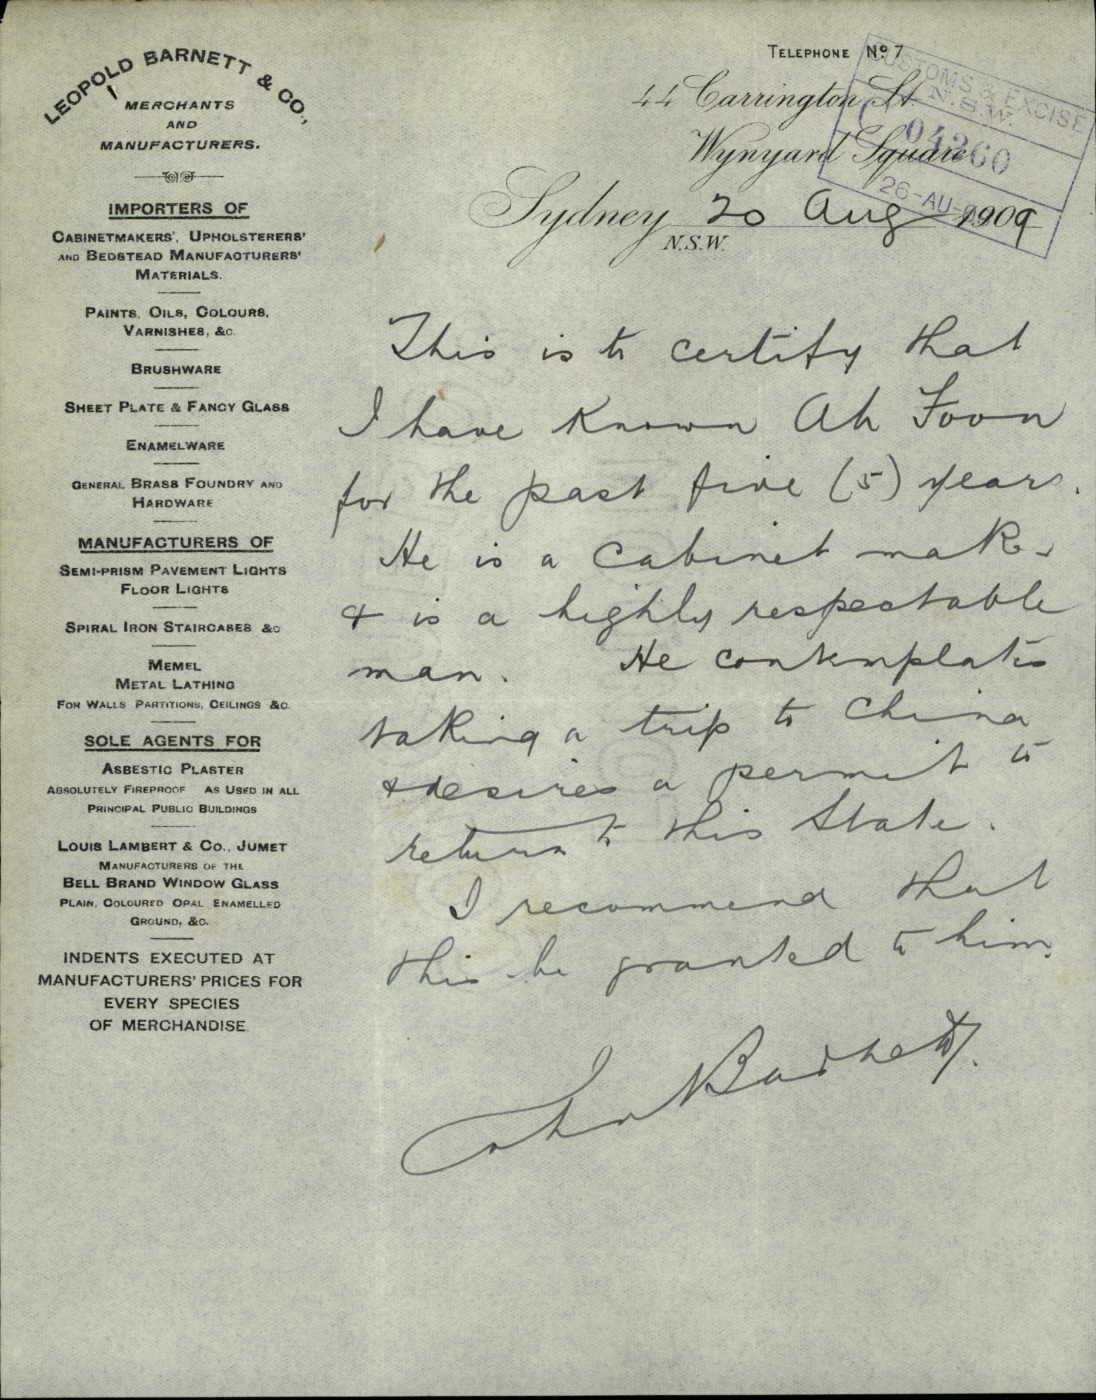 LEOPOLD BARNETT & CO.,
MERCHANTS
AND
MANUFACTURERS.
IMPORTERS OF
CABINETMAKERS', UPHOLSTERERS'
AND BEDSTEAD MANUFACTURERS'
MATERIALS.
PAINTS, OILS, COLOURS,
VARNISHES, &c.
BRUSHWARE
SHEET PLATE & FANCY GLASS
ENAMELWARE
GENERAL BRASS FOUNDRY AND
HARDWARE
MANUFACTURERS OF
SEMI-PRISM PAVEMENT LIGHTS
FLOOR LIGHTS
SPIRAL IRON STAIRCASES &c
MEMEL
METAL LATHING
FOR WALLS PARTITIONS, CEILINGS &c.
SOLE AGENTS FOR
ASBESTIC PLASTER
ABSOLUTELY FIREPROOF AS USED IN ALL
PRINCIPAL PUBLIC BUILDINGS
LOUIS LAMBERT & CO., JUMET
MANUFACTURERS OF THE
BELL BRAND WINDOW GLASS
PLAIN, COLOURED OPAL ENAMELLED
GROUND, &c.
INDENTS EXECUTED AT
MANUFACTURERS' PRICES FOR
EVERY SPECIES
OF MERCHANDISE
TELEPHONE No 7
44 Carrington St.
Wynyard Square
Sydney 20 Aug 1909
N.S.W.
CUSTOMS & EXCISE
N.S.W.
C 04260
26-AU-
This is to certify that
I have known Ah Foon
for the past five (5) years.
He is a cabinet maker
& is a highly respectable
man. He contemplates
taking a trip to China
& desires a permit to
return to this State.
I recommend that
this be granted to him.
John Barnett.